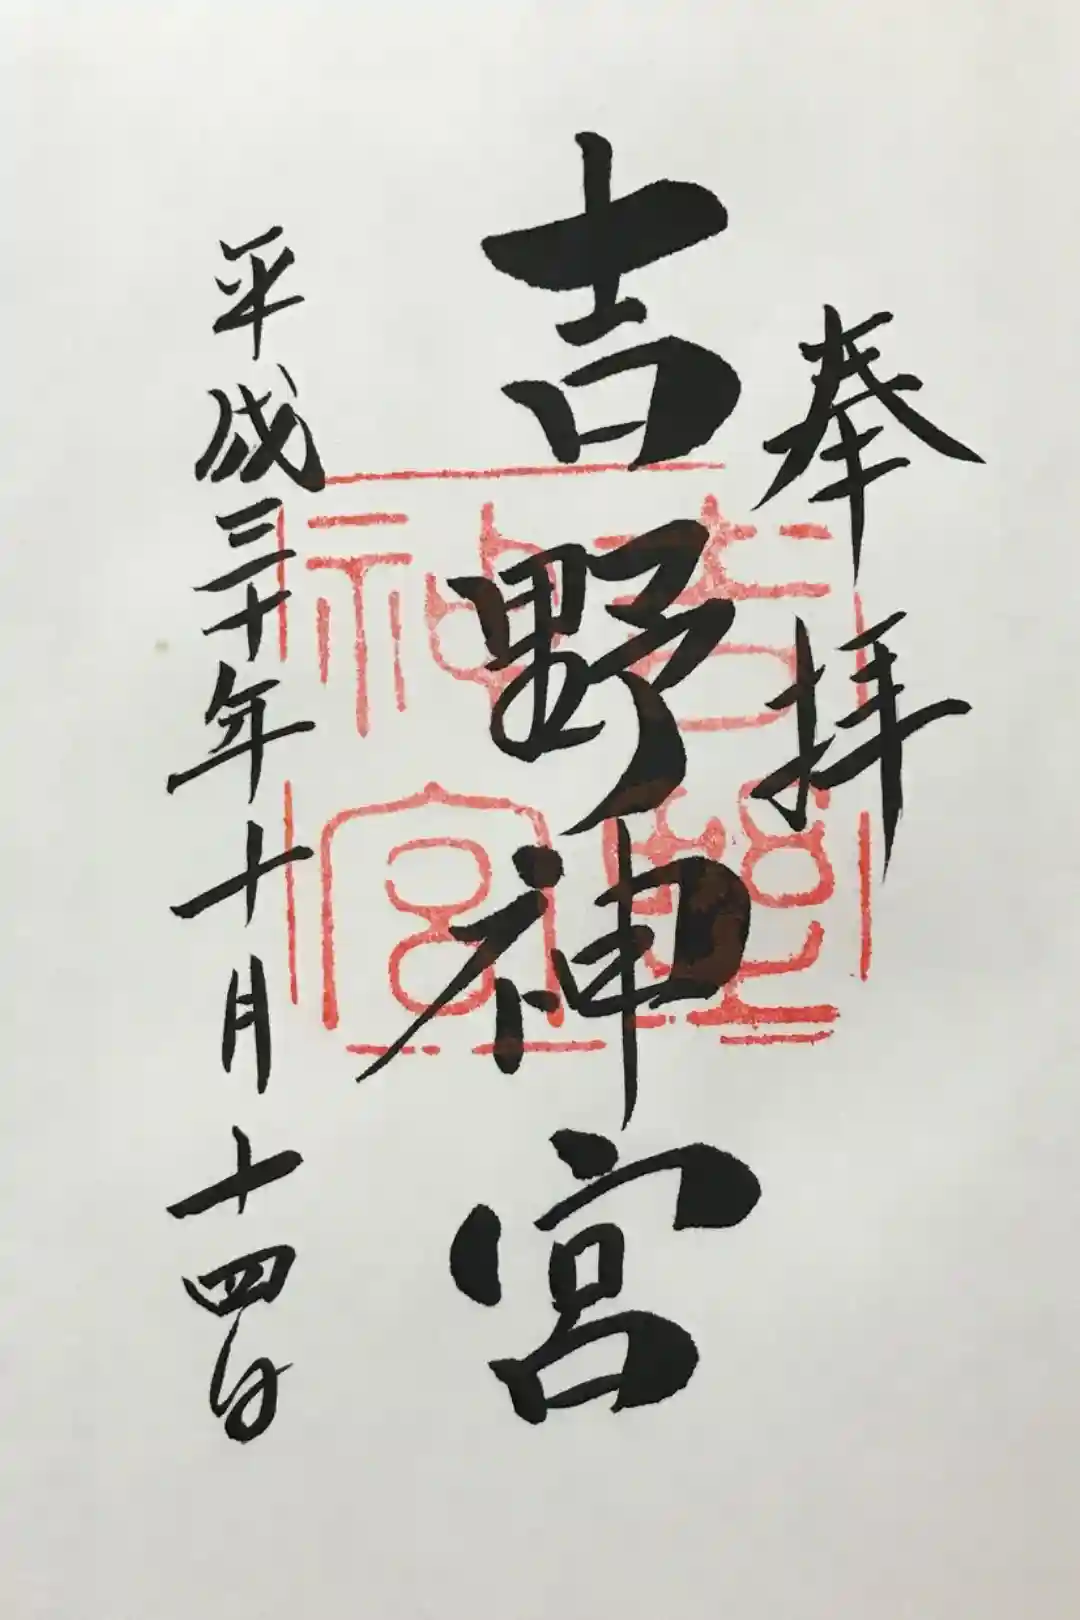 奉拝
吉野神宮
平成三十年十月十四日
吉野神宮